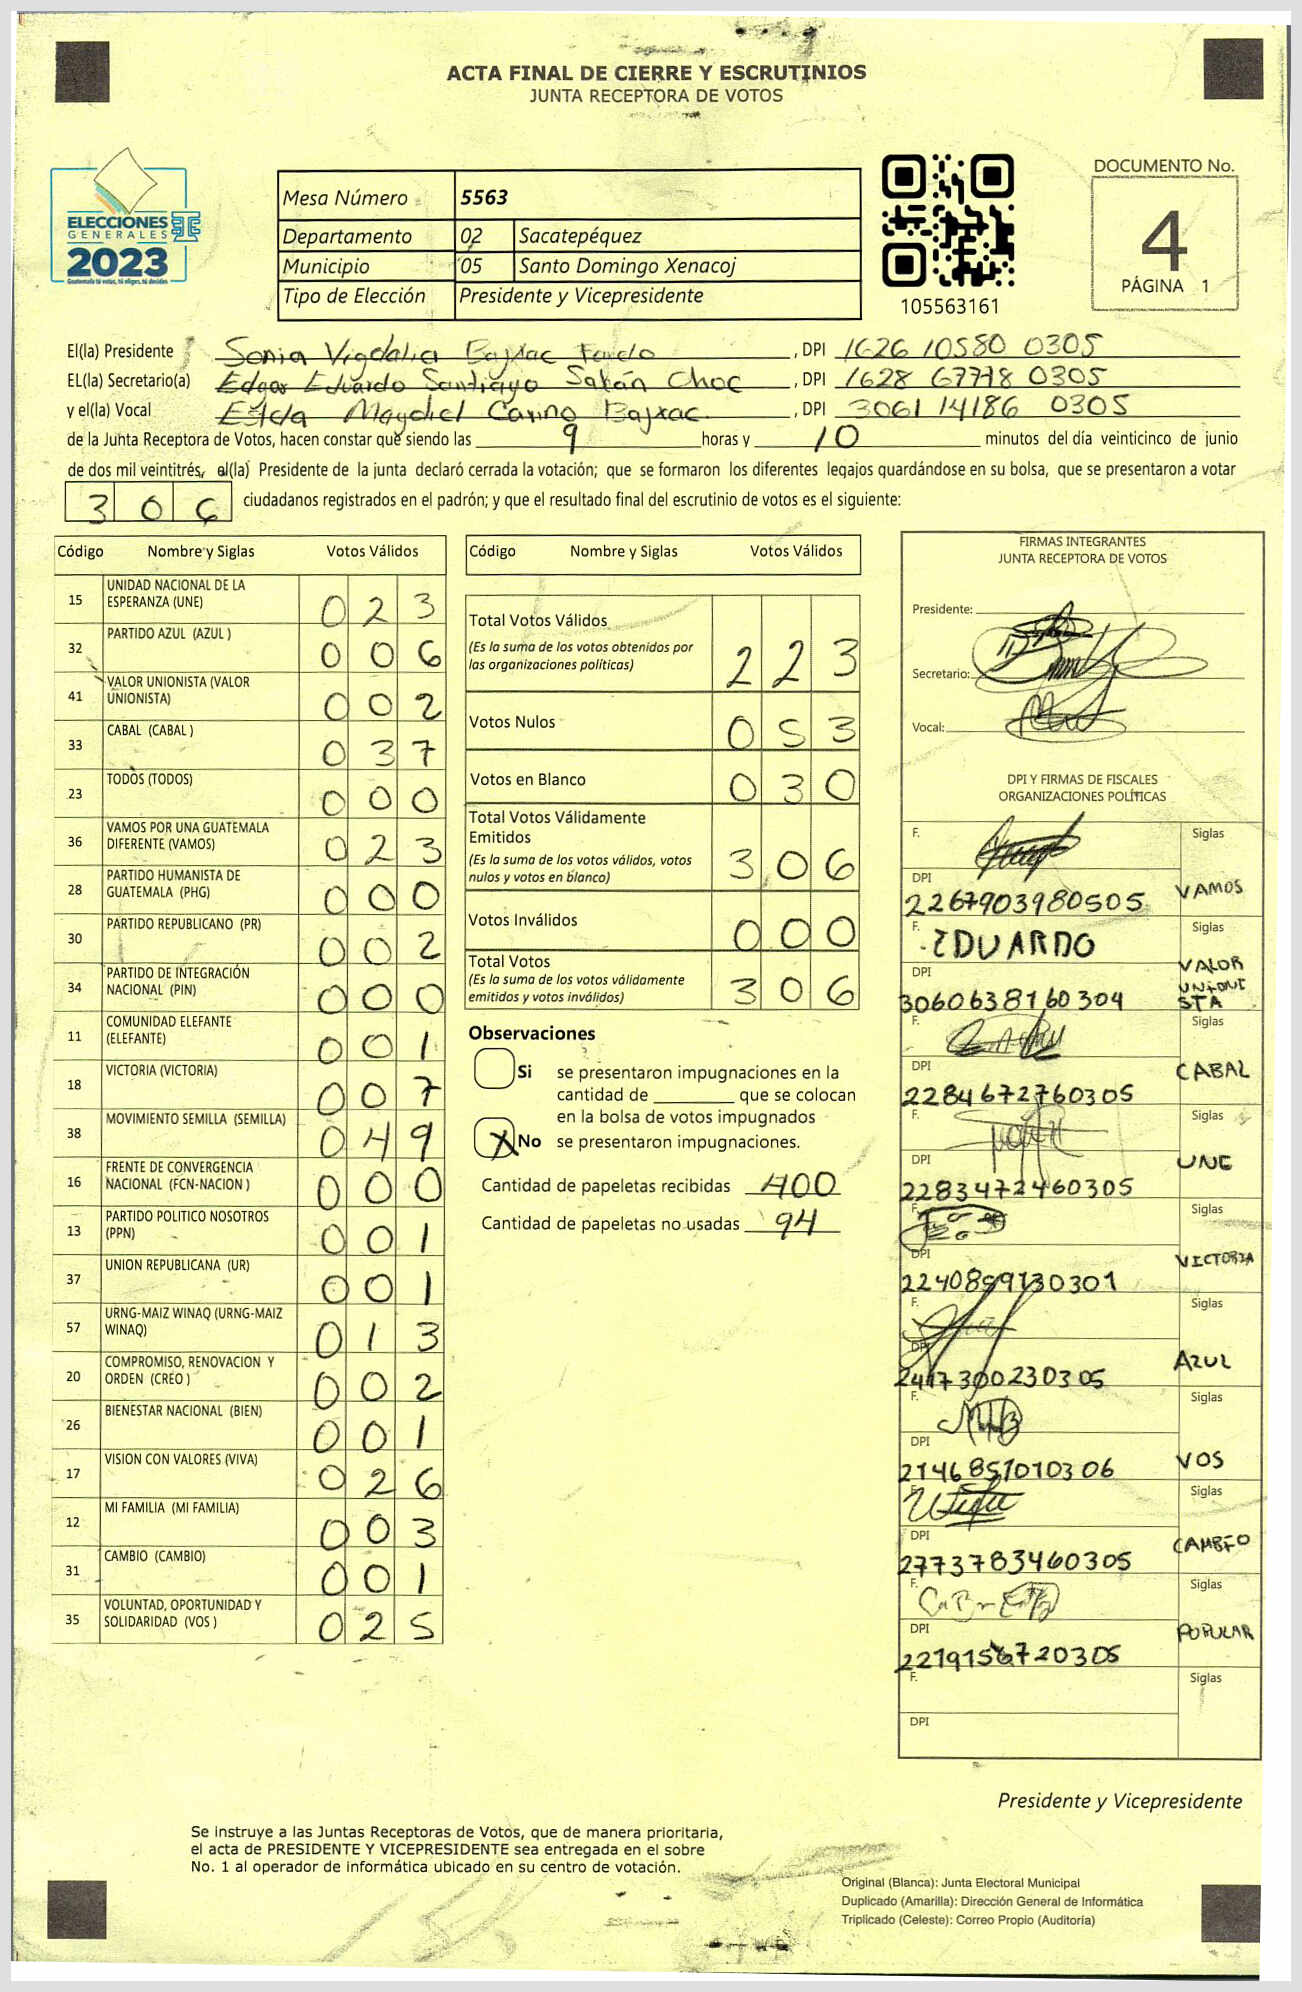 ACTA FINAL DE CIERRE Y ESCRUTINIOS
JUNTA RECEPTORA DE VOTOS
ELECCIONES
GENERALES
2023
Guatemala tú votas, tú eliges, tú decides
Mesa Número 5563
Departamento 02 Sacatepéquez
Municipio 05 Santo Domingo Xenacoj
Tipo de Elección Presidente y Vicepresidente
105563161
DOCUMENTO No.
4
PÁGINA 1
El(la) Presidente Sonia Vigdalia Bajxac , DPI 1626 10580 0305
EL(la) Secretario(a) Edgar Eduardo Santiago Sabán Choc , DPI 1628 67778 0305
y el(la) Vocal Maydiel Carino Bajxac , DPI 3061 14186 0305
de la Junta Receptora de Votos, hacen constar que siendo las 9 horas y 10 minutos del día veinticinco de junio
de dos mil veintitrés, el(la) Presidente de la junta declaró cerrada la votación; que se formaron los diferentes legajos quardándose en su bolsa, que se presentaron a votar
306 ciudadanos registrados en el padrón; y que el resultado final del escrutinio de votos es el siguiente:
Código Nombre y Siglas Votos Válidos
15 UNIDAD NACIONAL DE LA ESPERANZA (UNE) 023
32 PARTIDO AZUL (AZUL ) 006
41 VALOR UNIONISTA (VALOR UNIONISTA) 002
33 CABAL (CABAL ) 037
23 TODOS (TODOS) 000
36 VAMOS POR UNA GUATEMALA DIFERENTE (VAMOS) 023
28 PARTIDO HUMANISTA DE GUATEMALA (PHG) 000
30 PARTIDO REPUBLICANO (PR) 002
34 PARTIDO DE INTEGRACIÓN NACIONAL (PIN) 000
11 COMUNIDAD ELEFANTE (ELEFANTE) 001
18 VICTORIA (VICTORIA) 007
38 MOVIMIENTO SEMILLA (SEMILLA) 049
16 FRENTE DE CONVERGENCIA NACIONAL (FCN-NACION ) 000
13 PARTIDO POLITICO NOSOTROS (PPN) 001
37 UNION REPUBLICANA (UR) 001
57 URNG-MAIZ WINAQ (URNG-MAIZ WINAQ) 013
20 COMPROMISO, RENOVACION Y ORDEN (CREO ) 002
26 BIENESTAR NACIONAL (BIEN) 001
17 VISION CON VALORES (VIVA) 026
12 MI FAMILIA (MI FAMILIA) 003
31 CAMBIO (CAMBIO) 001
35 VOLUNTAD, OPORTUNIDAD Y SOLIDARIDAD (VOS ) 025
Código Nombre y Siglas Votos Válidos
Total Votos Válidos 223
(Es la suma de los votos obtenidos por
las organizaciones políticas)
Votos Nulos 053
Votos en Blanco 030
Total Votos Válidamente
Emitidos 306
(Es la suma de los votos válidos, votos
nulos y votos en blanco)
Votos Inválidos 000
Total Votos 306
(Es la suma de los votos válidamente
emitidos y votos inválidos)
Observaciones
Si se presentaron impugnaciones en la
cantidad de ________ que se colocan
en la bolsa de votos impugnados
X No se presentaron impugnaciones.
Cantidad de papeletas recibidas 400
Cantidad de papeletas no usadas 94
FIRMAS INTEGRANTES
JUNTA RECEPTORA DE VOTOS
Presidente:
Secretario:
Vocal:
DPI Y FIRMAS DE FISCALES
ORGANIZACIONES POLÍTICAS
F. Siglas
DPI VAMOS
2267903980505
F. EDUARDO Siglas
DPI VALOR UNIONISTA
3060638160304
F. Siglas
DPI CABAL
2284672760305
F. Siglas
DPI UNE
2283472460305
F. Siglas
DPI VICTORIA
2240899130301
F. Siglas
DPI AZUL
2417300230305
F. Siglas
DPI VOS
2146851010306
F. Siglas
DPI CAMBIO
2773783460305
F. Siglas
DPI POPULAR
2219156720305
F. Siglas
DPI
Presidente y Vicepresidente
Se instruye a las Juntas Receptoras de Votos, que de manera prioritaria,
el acta de PRESIDENTE Y VICEPRESIDENTE sea entregada en el sobre
No. 1 al operador de informática ubicado en su centro de votación.
Original (Blanca): Junta Electoral Municipal
Duplicado (Amarilla): Dirección General de Informática
Triplicado (Celeste): Correo Propio (Auditoría)